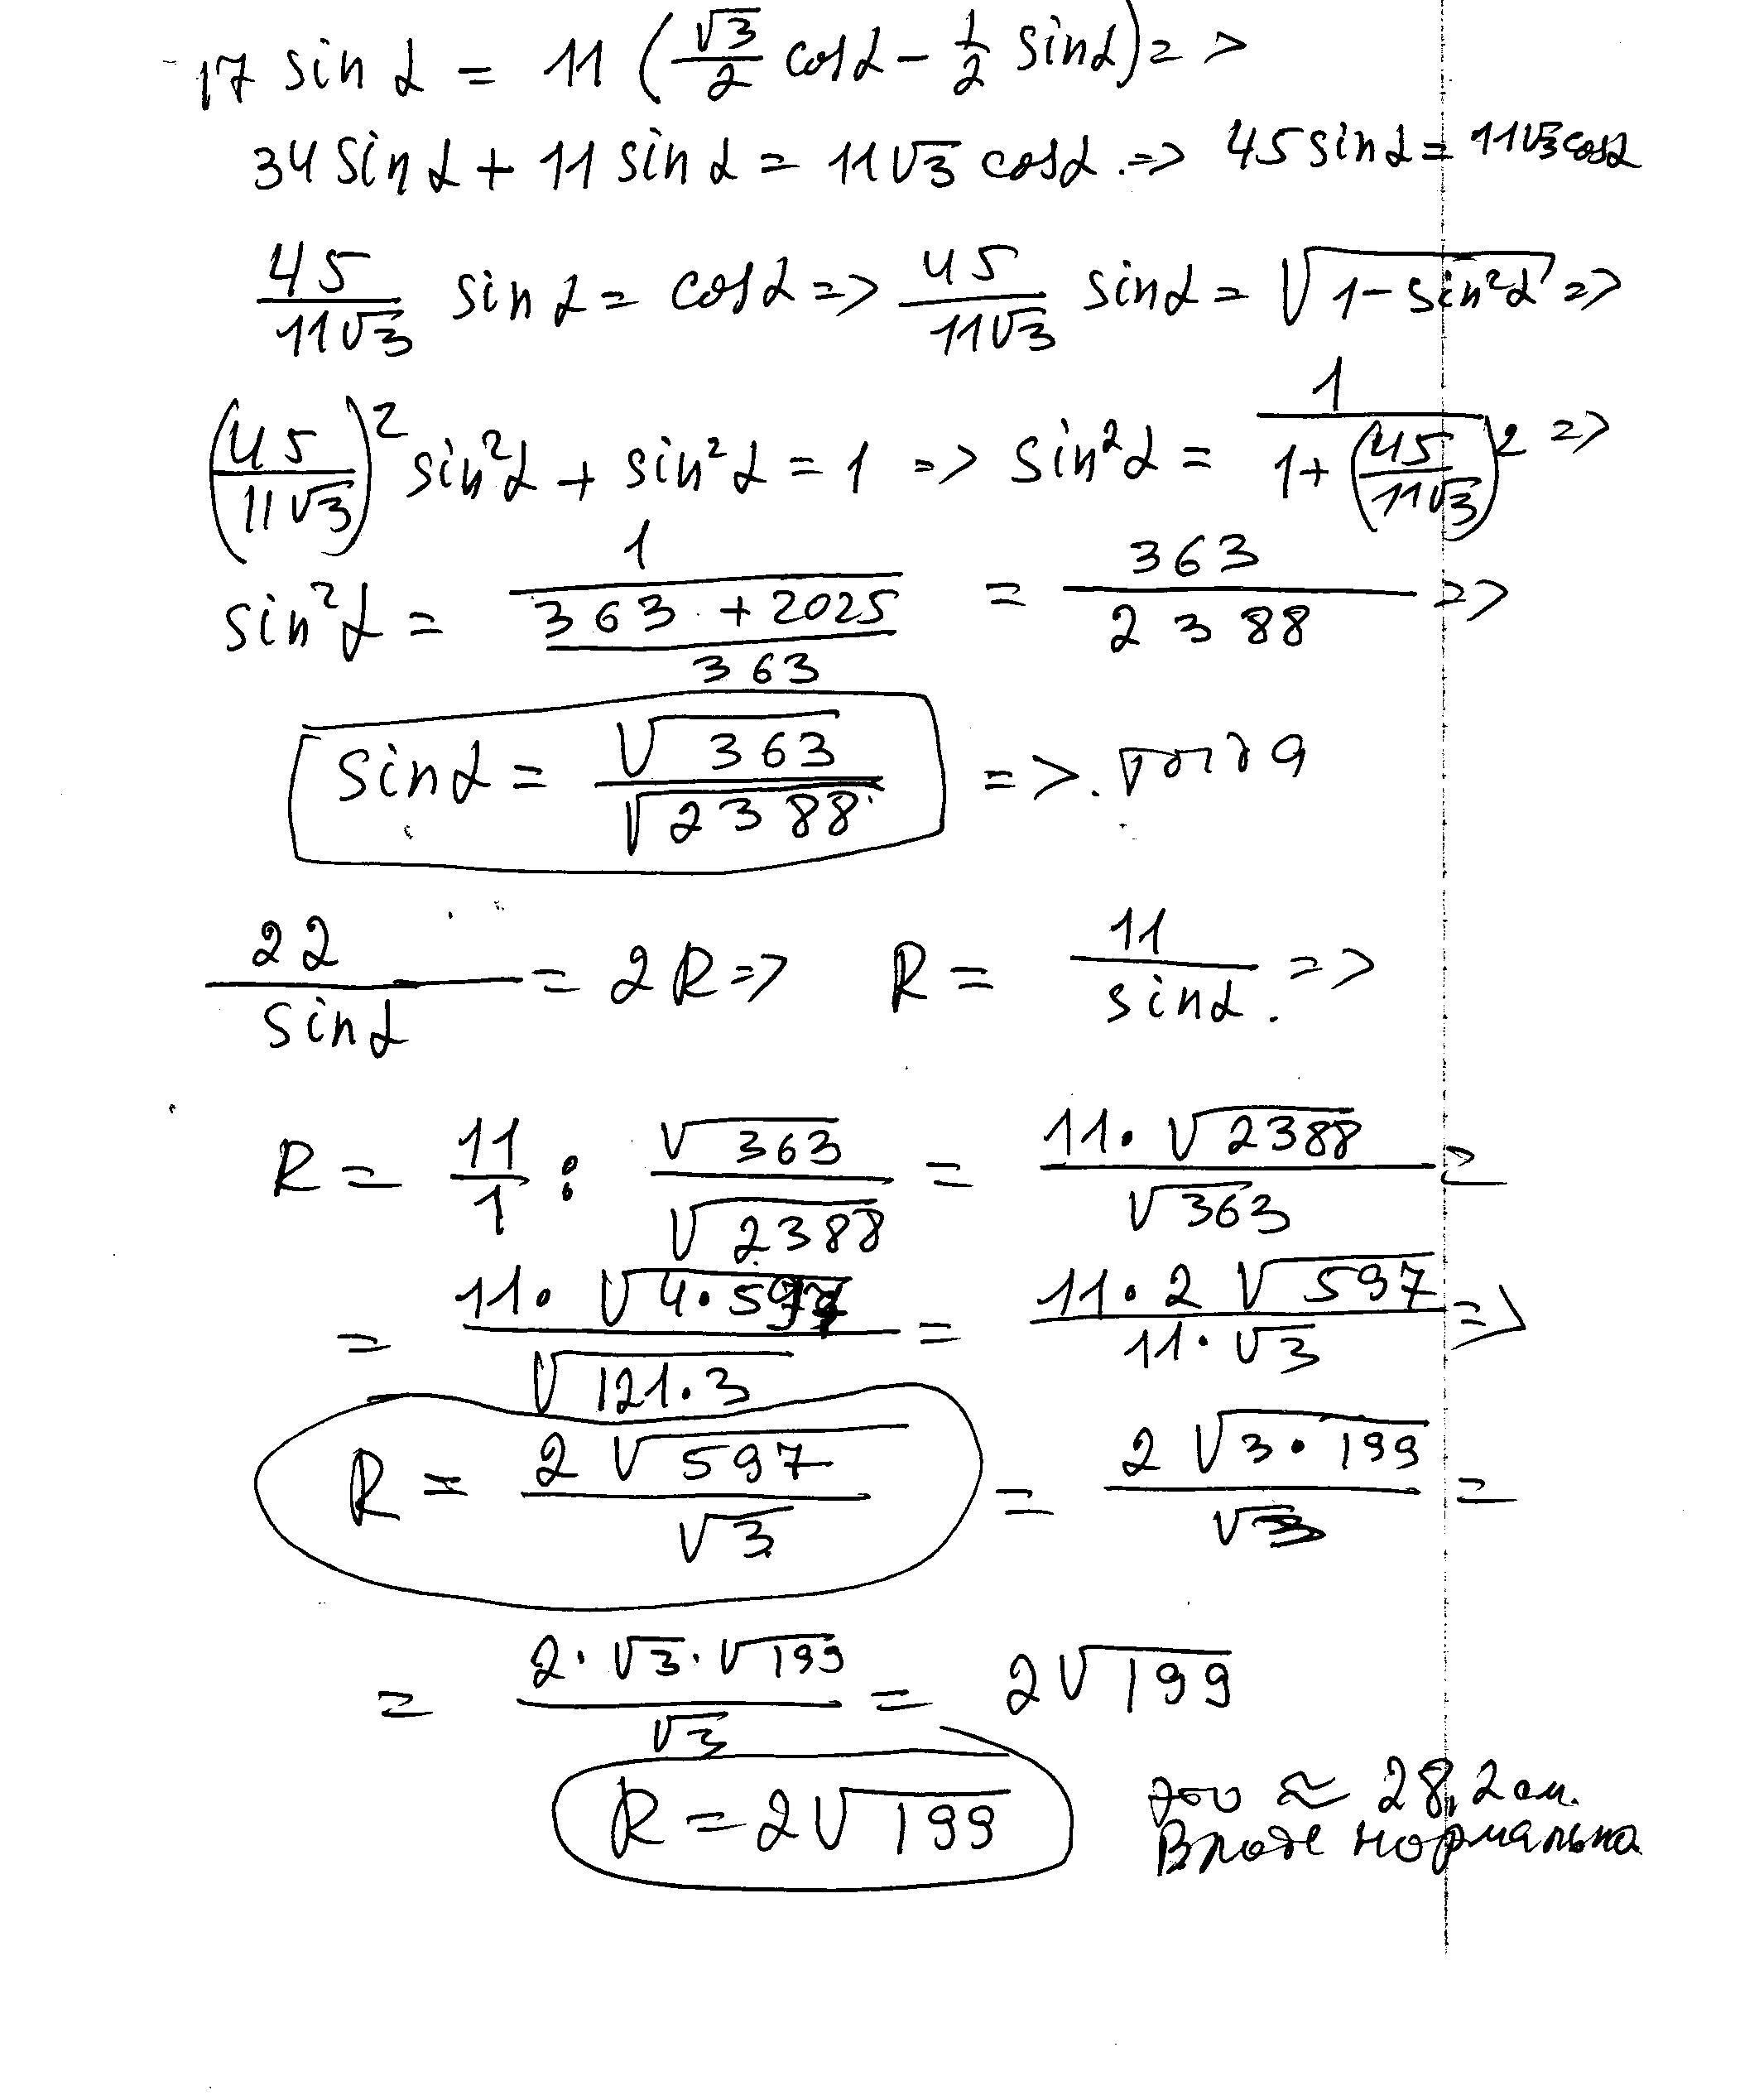 17 sin α = 11 (√3/2 cos α − 1/2 sin α) =>
34 sin α + 11 sin α = 11√3 cos α. => 45 sin α = 11√3 cos α
45/(11√3) sin α = cos α => 45/(11√3) sin α = √(1 − sin² α) =>
(45/(11√3))² sin² α + sin² α = 1 => sin² α = 1/(1 + (45/(11√3))²) =>
sin² α = 1/((363 + 2025)/363) = 363/2388 =>
sin α = √363/√2388 =>. тогда
22/sin α = 2R => R = 11/sin α. =>
R = 11/1 : √363/√2388 = 11·√2388/√363 =
= 11·√(4·597)/√(121·3) = 11·2√597/(11·√3) =>
R = 2√597/√3 = 2√(3·199)/√3 =
= 2·√3·√199/√3 = 2√199
R = 2√199 это ≈ 28,2 см.
Вроде нормально